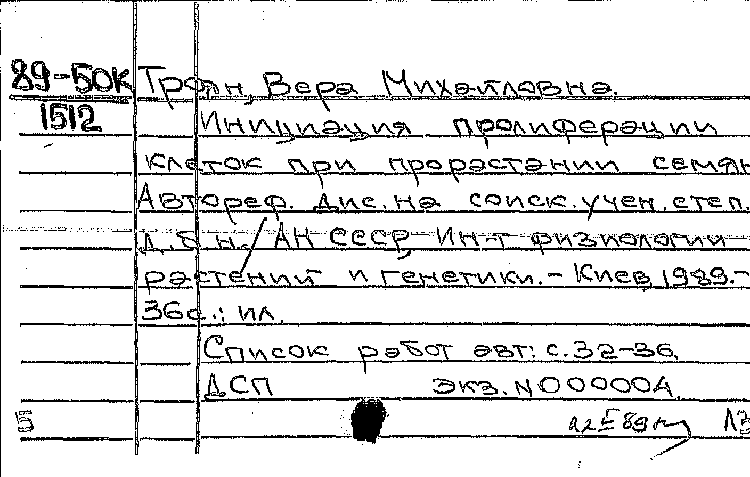 89-50к Троян, Вера Михайловна.
1512
Инициация пролиферации
клеток при прорастании семян
Автореф. дис. на соиск. учен. степ.
д. б. н. / АН СССР, Ин-т физиологии
растений и генетики. - Киев, 1989. -
36с.: ил.
Список работ авт: с. 32-36.
ДСП экз. N000004.
Б 89 ЛЗ